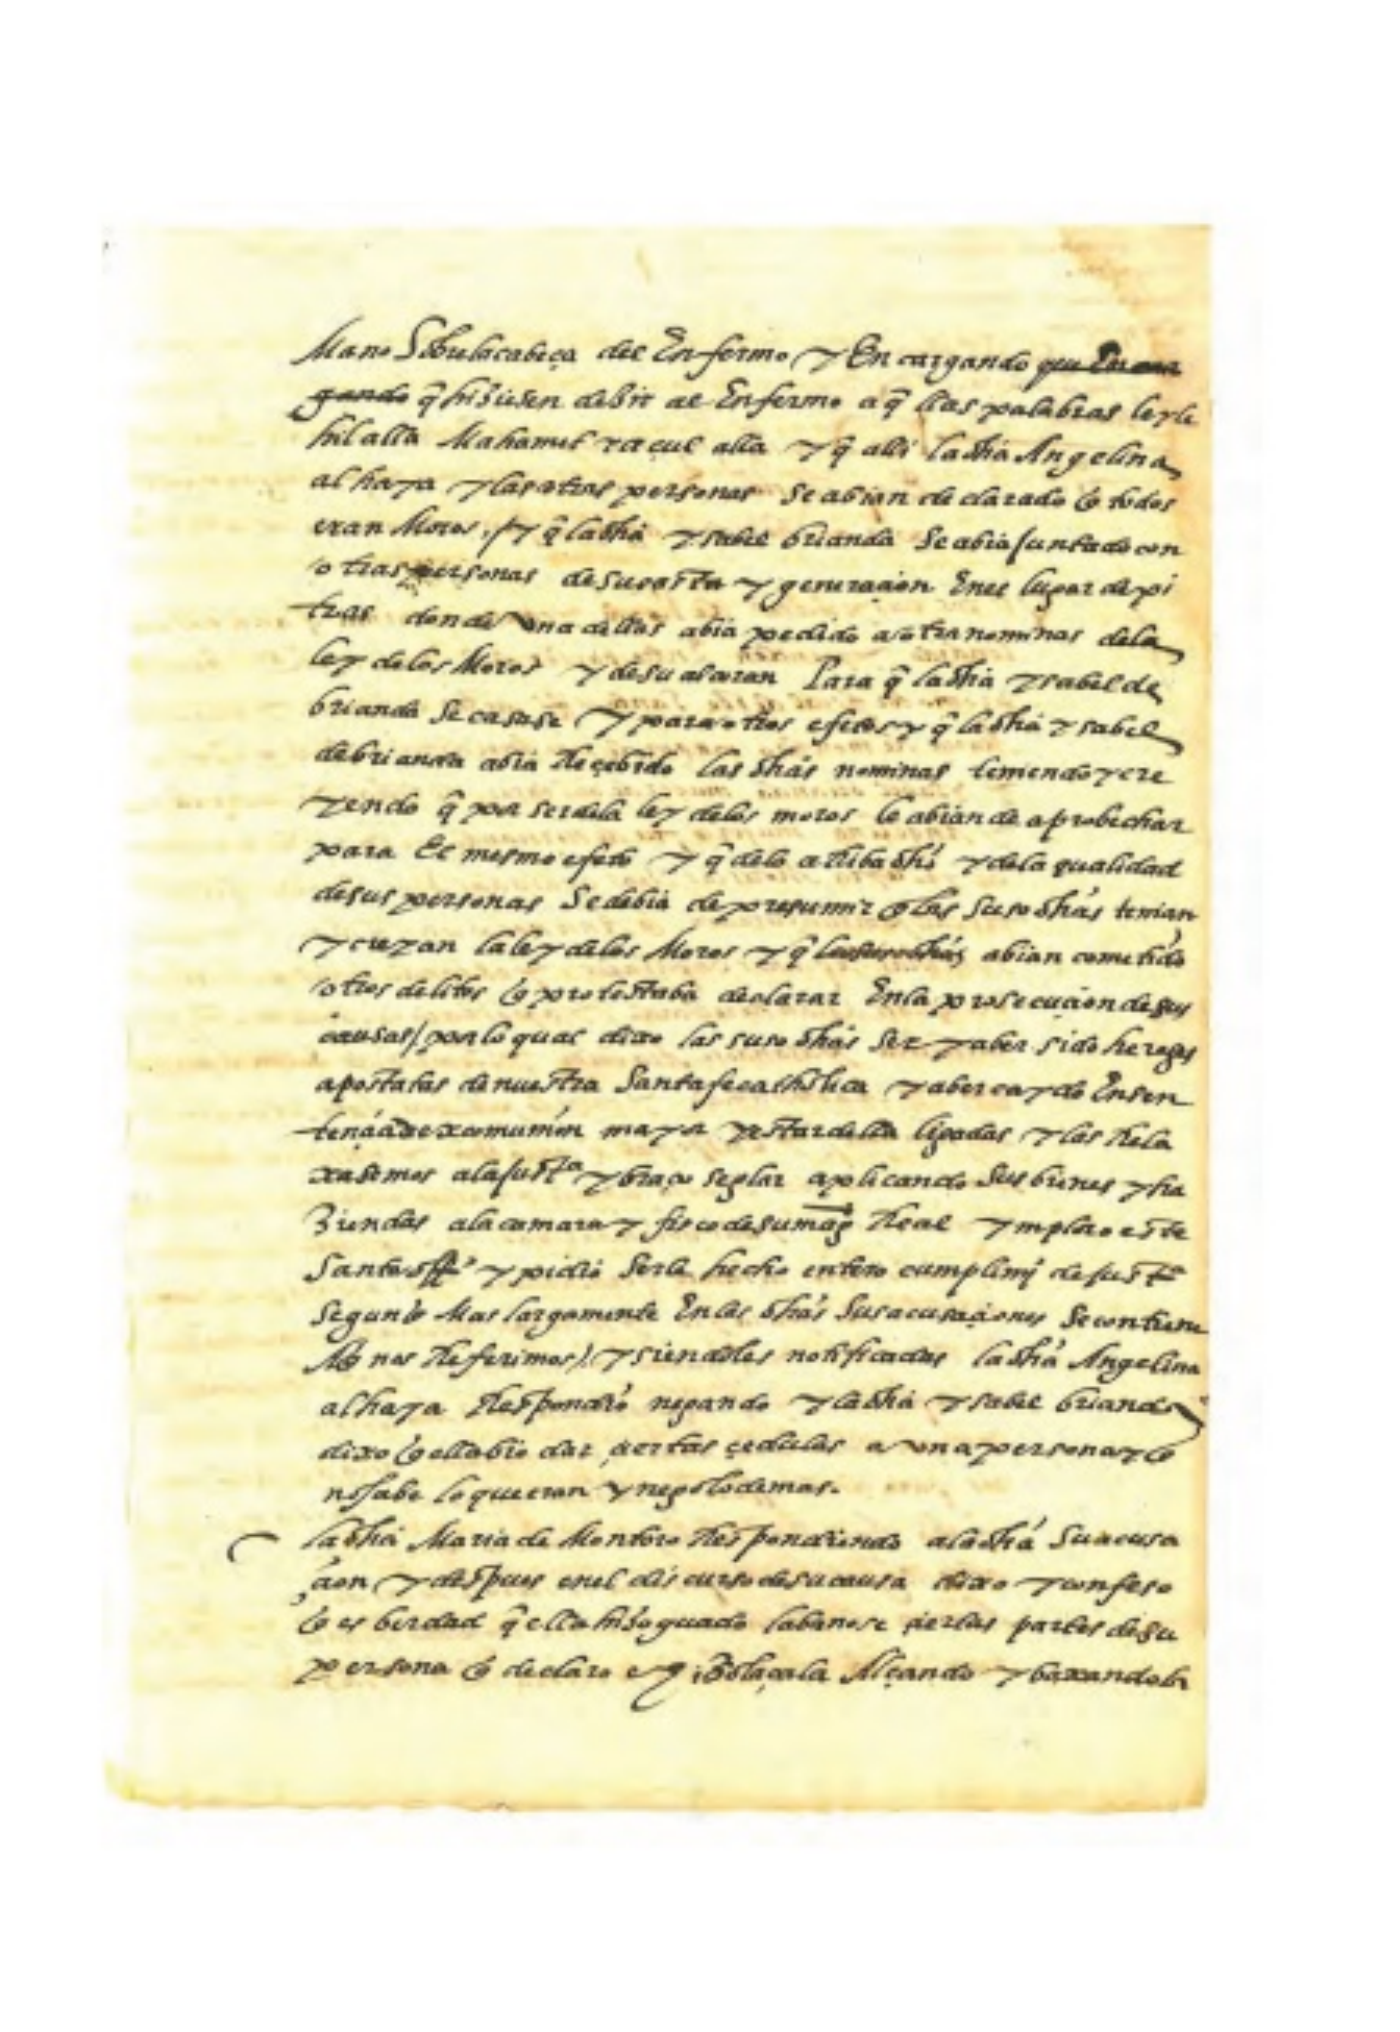 Mano Sobre la cabeça del Enfermo y En cargando que En car
gando q̃ hiziesen dezir al Enfermo aq̃llas palabras leyle
hilalla Mahamet raçul alla y q̃ alli la dha Angelina
alhaya y las otras personas se abian declarado q̃ todos
eran Moros, / y q̃ la dha ysabel brianda se abia juntado con
otras personas de su casta y generaçion En el lugar de pi
tras donde Una dellas abia pedido a otra nominas de la
ley de los Moros y de su alcoran Para q̃ la dha ysabel de
brianda se casase y para otros efetos y q̃ la dha ysabel
de brianda abia Reçebido las dhas nominas teniendo y cre
yendo q̃ por ser de la ley de los moros le abian de aprobechar
para El mesmo efeto y q̃ de lo aRiba dho y de la qualidad
de sus personas Se debia de presumir q̃ las suso dhas tenian
y creyan la ley de los Moros y q̃ las suso dhas abian cometido
otros delitos q̃ protestaba declarar En la prosecuçion de sus
causas / por lo qual dixo las suso dhas ser y aber sido herejes
apostatas de nuestra Santa fe catholica y aber caydo En sen
tençia de xcomunion mayor y estar della ligadas y las Rela
xasemos a la justa y braço seglar aplicando sus bienes y ha
ziendas a la camara y fisco de su magt Real ymploro este
Santo offo y pidio serle hecho entero cumplimyo de justa
segun q̃ Mas largamente En las dhas sus acusaçiones se contiene
A q̃ nos Referimos / y siendoles notificadas la dha Angelina
alhaya Respondio negando y la dha ysabel brianda
dixo q̃ ella bio dar çiertas çedulas a una persona y q̃
no sabe lo que eran y nego lo demas.
la dha Maria de Montoro Respondiendo a la dha su acusa
çion y despues en el discurso de su causa dixo y confeso
q̃ es berdad q̃ ella hizo guado labanose çiertas partes de su
persona q̃ declaro e hizo la çala Alçando y baxandola